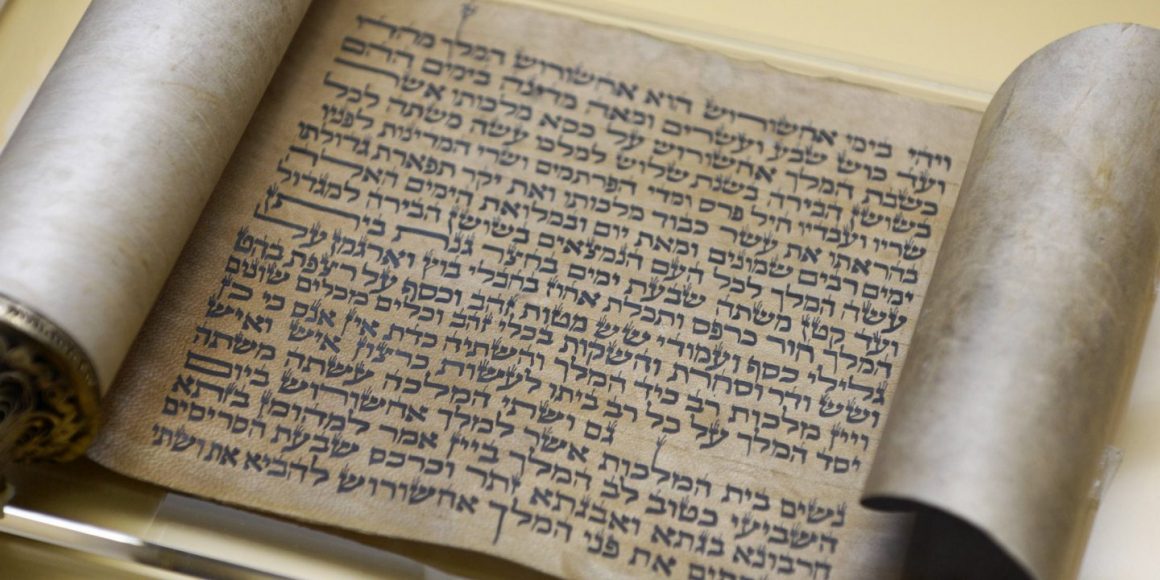 ויהי בימי אחשורוש הוא אחשורוש המלך מהדו
ועד כוש שבע ועשרים ומאה מדינה בימים ההם
כשבת המלך אחשורוש על כסא מלכותו אשר
בשושן הבירה בשנת שלוש למלכו עשה משתה לכל
שריו ועבדיו חיל פרס ומדי הפרתמים ושרי המדינות לפניו
בהראתו את עשר כבוד מלכותו ואת יקר תפארת גדולתו
ימים רבים שמונים ומאת יום ובמלואת הימים האלה
עשה המלך לכל העם הנמצאים בשושן הבירה למגדול
ועד קטן משתה שבעת ימים בחצר גנת ביתן
המלך חור כרפס ותכלת אחוז בחבלי בוץ וארגמן על
גלילי כסף ועמודי שש מטות זהב וכסף על רצפת בהט
ושש ודר וסחרת והשקות בכלי זהב וכלים מכלים שונים
ויין מלכות רב כיד המלך והשתיה כדת אין אנס כי כן
יסד המלך על כל רב ביתו לעשות כרצון איש ואיש
גם ושתי המלכה עשתה משתה
נשים בית המלכות אשר למלך אחשורוש ביום
השביעי כטוב לב המלך ביין אמר למהומן בזתא
חרבונא בגתא ואבגתא זתר וכרכס שבעת הסריסים
את פני המלך אחשורוש להביא את ושתי